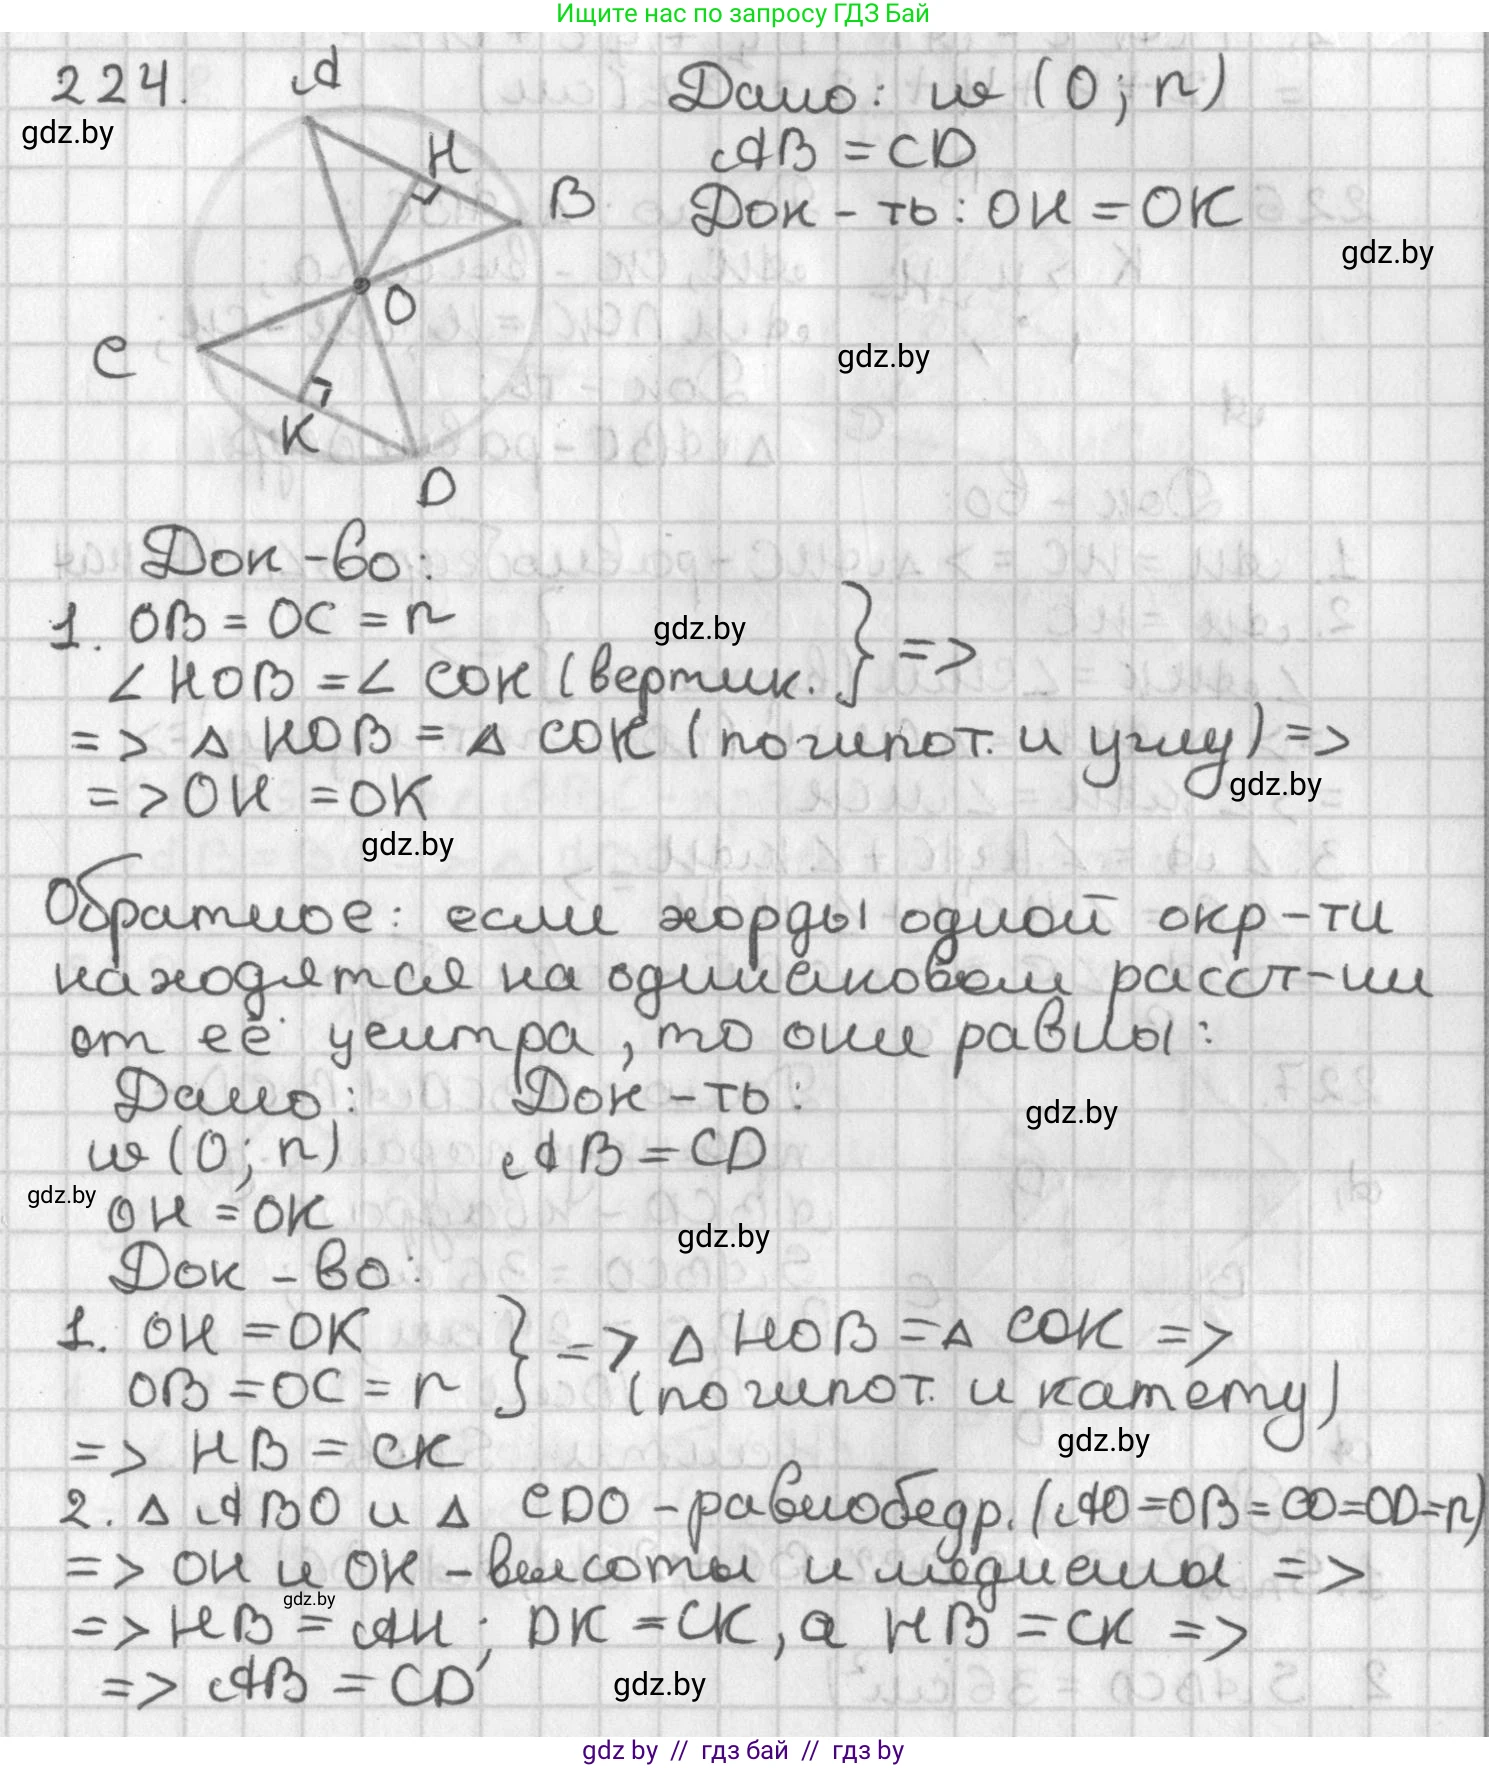 Ищите нас по запросу ГДЗ Бай
224.
A
H
B
O
C
K
D
Дано: w (O; r)
AB = CD
Док-ть: OH = OK
gdz.by
gdz.by
gdz.by
Док-во:
1. OB = OC = r
gdz.by
∠ HOB = ∠ COK (вертик.
} =>
=> Δ HOB = Δ COK (по гипот. и углу) =>
=> OH = OK
gdz.by
gdz.by
Обратное: если хорды одной окр-ти
находятся на одинаковом расст-нии
от её центра, то они равны:
Дано: Док-ть:
gdz.by
w (O; r) AB = CD
gdz.by
OH = OK
gdz.by
Док-во:
1. OH = OK } => Δ HOB = Δ COK =>
OB = OC = r (по гипот. и катету)
gdz.by
=> HB = CK
2. Δ ABO и Δ CDO - равнобедр. (AO=OB=CO=OD=r)
=> OH и OK - высоты и медианы =>
gdz.by
=> HB = AH; DK = CK, а HB = CK =>
=> AB = CD
gdz.by
gdz by // гдз бай // гдз by